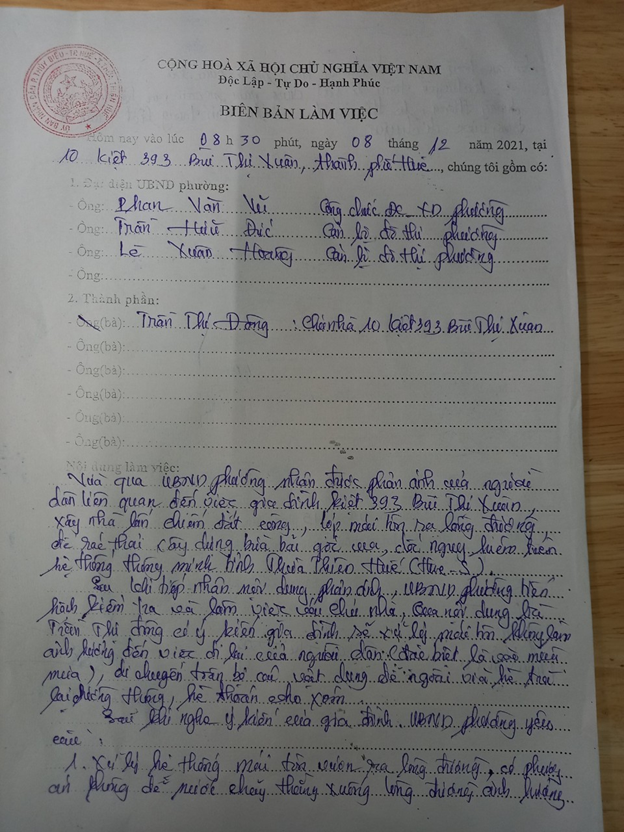 CỘNG HOÀ XÃ HỘI CHỦ NGHĨA VIỆT NAM
Độc Lập - Tự Do - Hạnh Phúc
BIÊN BẢN LÀM VIỆC
Hôm nay vào lúc 08 h 30 phút, ngày 08 tháng 12 năm 2021, tại
10 kiệt 393 Bùi Thị Xuân, thành phố Huế, chúng tôi gồm có:
1. Đại diện UBND phường:
- Ông: Phan Văn Vũ Công chức ĐC-XD phường
- Ông: Trần Hữu Đức Cán bộ đô thị phường
- Ông: Lê Xuân Hoàng Cán bộ đô thị phường
- Ông:
2. Thành phần:
- Ông(bà): Trần Thị Đông : Chủ nhà 10 kiệt 393 Bùi Thị Xuân
- Ông(bà):
- Ông(bà):
- Ông(bà):
- Ông(bà):
- Ông(bà):
Nội dung làm việc:
Vừa qua UBND phường nhận được phản ánh của người
dân liên quan đến việc gia đình kiệt 393 Bùi Thị Xuân,
xây nhà lấn chiếm đất công, lợp mái tôn ra lòng đường,
để rác thải xây dựng bừa bãi trên
hệ thống thông minh tỉnh Thừa Thiên Huế (Hue S).
Sau khi tiếp nhận nội dung phản ánh, UBND phường tiến
hành kiểm tra và làm việc với chủ nhà, Qua nội dung bà
Trần Thị Đông có ý kiến gia đình sẽ xử lý mái tôn không làm
ảnh hưởng đến việc đi lại của người dân (đặc biệt là vào mùa
mưa), di chuyển toàn bộ các vật dụng để ngoài vỉa hè trả
lại đường thông, hè thoáng cho xóm.
Sau khi nghe ý kiến của gia đình. UBND phường yêu
cầu:
1. Xử lý hệ thống mái tôn vươn ra lòng đường, có phương
án không để nước chảy thẳng xuống lòng đường, ảnh hưởng